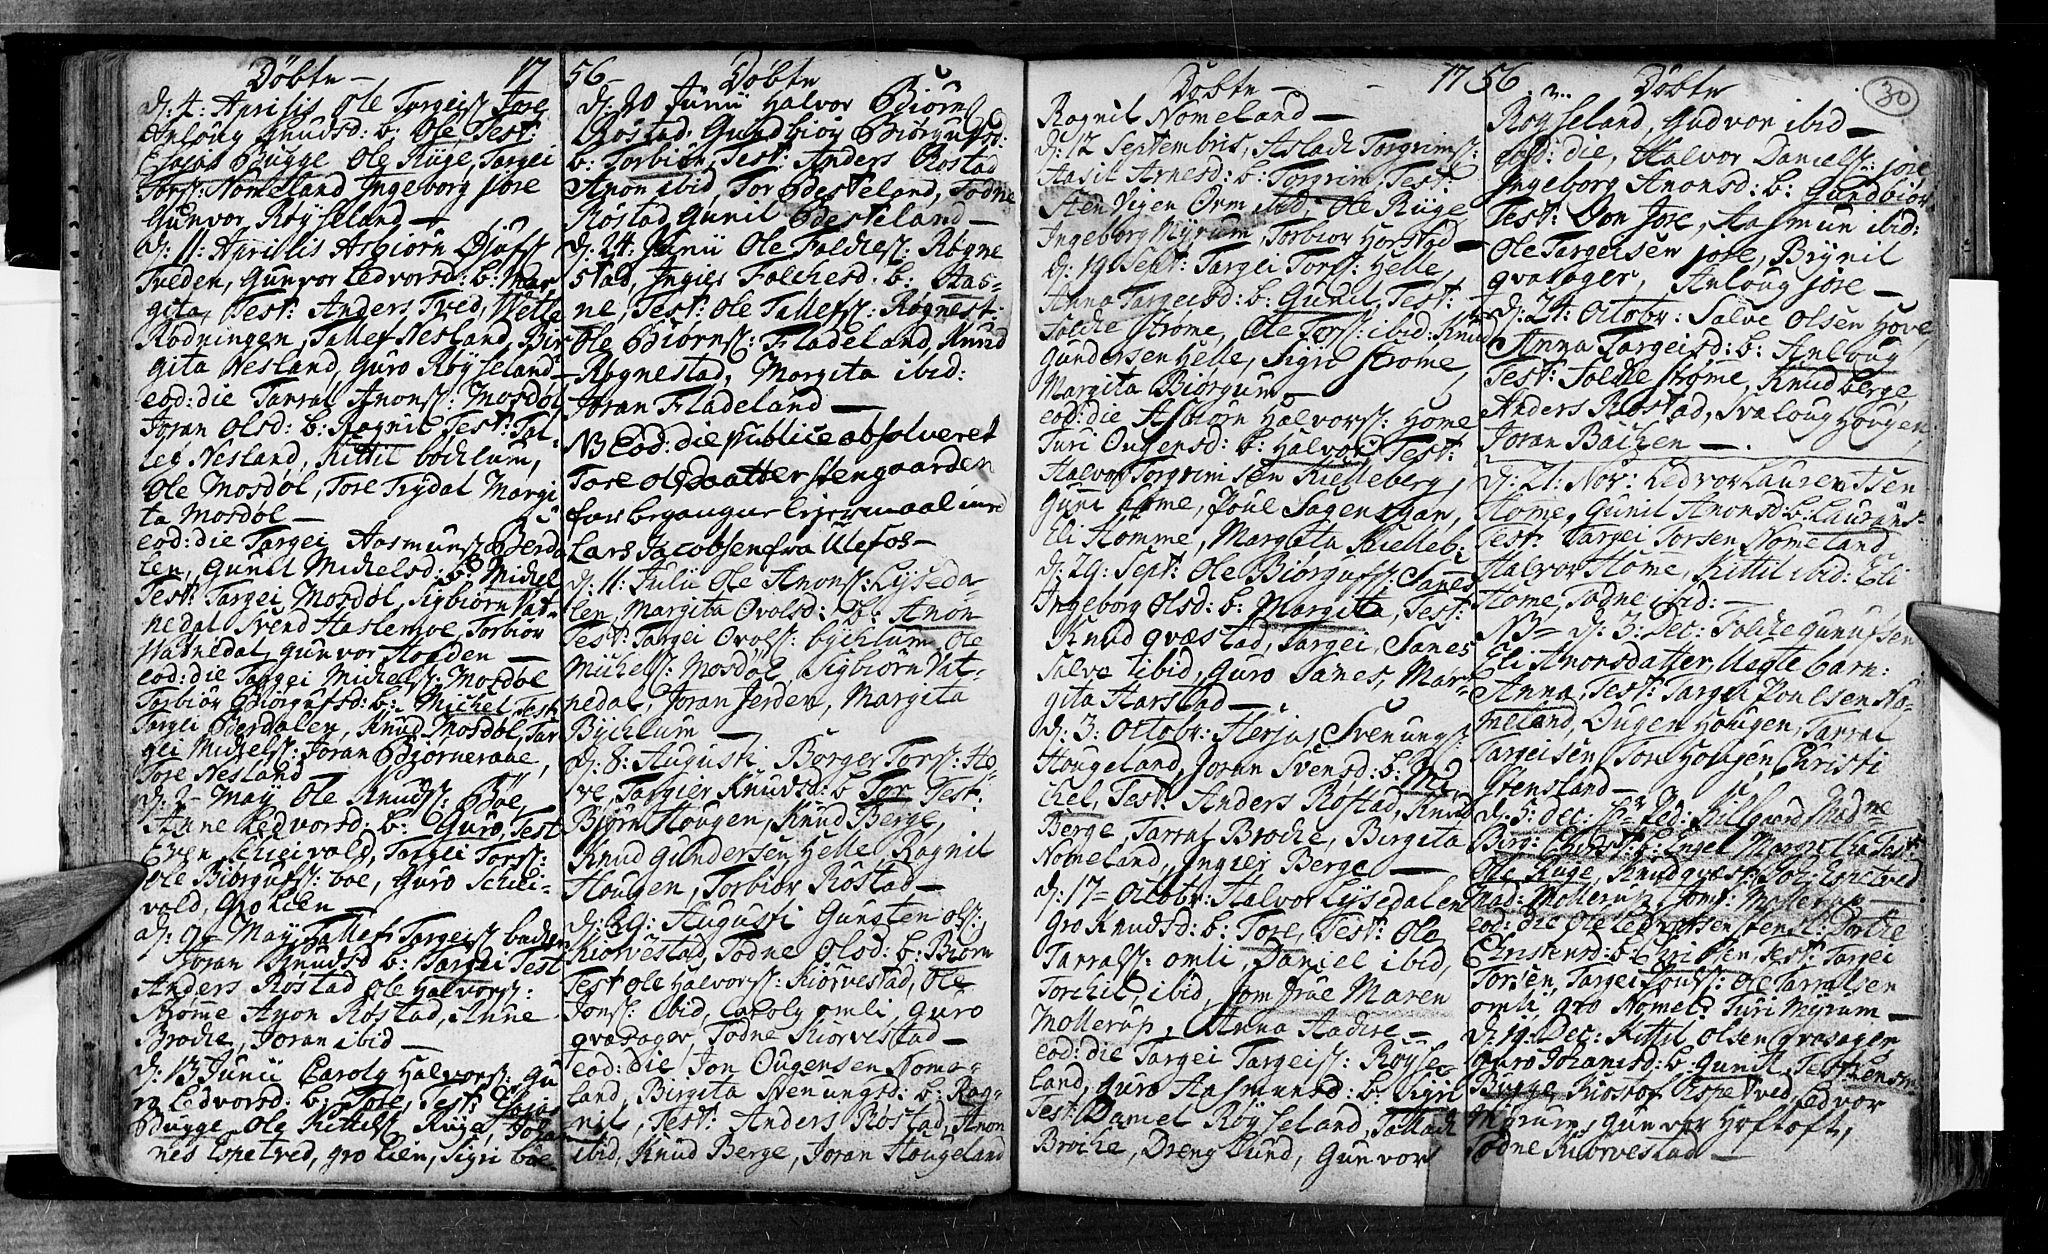 Döbte — 17
d: 4: Aprilis Ole Targeisſ: Jore
Anloug Knudsd: b: Ole Test:
Esaias Bugge Ole Ruge, Targei
Torsſ: Nomeland Ingeborg Jore
Gunvor Röyseland —
d: 11: Aprilis Asbiörn
Tveden, Gunvor Ledvorsd: b: Mar
gita, Test: Anders Tved, Wetle
Rödningen, Tallef Nesland, Bir
gita Nesland, Guro Röyseland,
eod: die Tarral Anonsſ: Mosdöl
Joran Olsd: b: Ragnil Test: Tal-
lef Nesland, Kittil böchlum,
Ole Mosdöl, Tore Trydal Margi
ta Mosdöl —
eod: die Targei Aasmunsſ: Berda
len, Gunil Michelsd: b: Michel
Test: Targei Mosdöl, Sigbiörn Vat-
nedal Svend Haslemoe, Torbiör
Watnedal, Gunvor Holden —
eod: die Targei Michelsſ: Mosdöl
Torbiör Biörgufsd: b: Michel, Test
Targei Berdalen, Knud Mosdöl, Tar
gei Michelsſ: Joran Biörneraae,
Tore Nesland
d: 2— May Ole Knudsſ: Böe,
Anne Ledvorsd: b: Guro, Test
Even Scheivald, Targei Torsſ:
Ole Biörgufsſ: boe, Guro Schei-
vald, Gro Lien —
d: 9— May Tallef Targeisſ: bachen
Joran Knudsd b: Targei Test
Anders Rostad Ole Halvorsſ:
Anon Röstad, Anne
Broche, Joran ibid —
d: 13 Junii Caroly Halvorsſ: Gu
ro Ledvorsd: b: Tore, Test: Esaias
Bugge Ole Kittelsſ Ruge, Johan
nes Espetved, Gro Lien, Sigri böe
56— Döbte
d: 20 Junii Halvor Biörnsſ:
Röstad Gundbiör Biörgufsd:
b: Torbiör, Test: Anders Röstad
Anon ibid, Tor Besteland, Todne
Röstad, Gunil Besteland —
d: 24 Junii Ole Falchesſ: Rögne
stad, Ingier Falchesd: b: Aas-
ne, Test: Ole Tallefsſ: Rögnest:
Ole Biörnsſ: Fladeland, Knud
Rögnestad, Margita ibid:
Joran Fladeland —
NB Eod: die publice absolveret
Tore olsdaatter Stengaarden
for begangne leiermaal med
Lars Jacobsen fra Ulefos —
d: 11: Julii Ole Anonsſ: Lyseda-
len, Margita Ovolsd: b: Anon
Test: Targei Ovolsſ: bychlum Ole
Michelsſ: Mosdöl, Sigbiörn Vat-
nedal, Joran Jerden, Margita
Bychlum —
d: 8: Augusti Börger Torsſ: Ho-
ve, Targier Knudsd: b Tor Test:
Biörn Hougen, Knud Berge,
Knud Gundersen Helle, Ragnil
Hougen, Torbiör Röstad —
d: 29: Augusti Gunsten olsſ:
Kiörvestad, Todne Olsd: b: Biörn
Test Ole Halvorsſ: Kiörvestad, Ole
Jonsſ: ibid, Caroly omli, Guro
qvasager, Todne Kiörvestad —
eod: die Jon Ougensen Nome-
land, Birgita Svenungsd: b: Rag-
nil, Test: Anders Röstad, Anon
ibid, Knud Berge, Joran Hougeland
Döbte — - 1756
Ragnil Nomeland —
d: 12 Septembris, Aslach Torgrimsſ:
Aasil Arnesd: b: Torgrim, Test:
Sten Vigen Orm ibid, Ole Ruge
Ingeborg Myrum, Torbiör Horstad —
d: 19 Sept: Targei Torsſ: Helle,
Anna Targeisd: b: Gunil, Test:
Folche Ströme, Ole Torsſ: ibid: Knud
Gundersen Helle, Sigri Ströme,
Margita Biörgum —
eod: die Asbiörn Halvorsſ: Home
Turi Ougensd: b: Halvor, Test:
Halvor Torgrimsen Kielleberg,
Guni home, Poul Sagenskar,
Eli Homme, Margita Kielleb:
d: 29: Sept: Ole Biörgufsſ: Sanes
Ingeborg Olsd: b: Margita, Test:
Knud qvæstad, Targei Sanes
Salve ibid, Guro Sanes, Mar-
gita Harstad —
d: 3: Octobr: Herjus Svenungsſ:
Hougeland, Joran Svensd: b: Mi-
chel, Test: Anders Röstad, Knud
Berge, Tarral Broche, Birgita
Nomeland, Ingier Berge —
d: 17— Octobr: Halvor Lysedalen
Gro Knudsd: b: Tore, Test: Ole
Tarralsſ: omli, Daniel ibid,
Torchil, ibid, Jomfrue Maren
Mollerup, Anna Aachre —
eod: die Targei Targeisſ: Röyse-
land, Guro Aasmunsd: b: Sigri
Test: Daniel Röyseland, Tallach
Broche, Dreng Lund, Gunvor
Döbte
30
Royseland, Gudvor ibid —
eod: die, Halvor Danielsſ: jore
Ingeborg Anonsd: b: Gundbiör
Test: Don Jore, Aasmun ibid:
Ole Targeisen jore, Brynil
qvasager, Anloug jore —
d: 24: Octobr: Salve Olsen Hove,
Anna Targeisd: b: Anloug
Test: Folche Ströme, Knud berge
Anders Röstad, Svaloug Hougen,
Joran Bachen —.
d: 21: Nov: Ledvor Laurentsen
Home, Gunil Anonsd: b: Laurens-
Test: Targei Torsen Nomeland,
Halvor Home, Kittil ibid: Eli
Home, Todne ibid: —
NB— d: 3: Dec: Folche Gunufsen
Eli Anonsdatter, Uegte barn:
Anna, Test: Targei Poulsen No-
meland, Ougen Hougen, Tarral
Targeisen, Tore Hougen, Christi
Stensland —
d: 5: Dec: Hr Ped: Killgaard Mad—ne
Birg: b: Engel Margretha Test:
Ole Ruge, Knud qvæst: Joh: Espetved
Mad: Mollerup, Jomf: Mollerup —
eod: die Ole Ledvorsen Dortie
Christensd: b: Christen, Test: Targei
Torsen, Targei Poulsſ: Ole Tarralsen
omli, Gro Nomeld Turi Myrum —
d: 19: Dec: Kittil Olsen qvasager
Guro Johanisd: b: Gunil, Test:
Bugge, Espetved, Ledvor
Myrum, Gunvor Hoftoft,
Todne Kiörvestad —